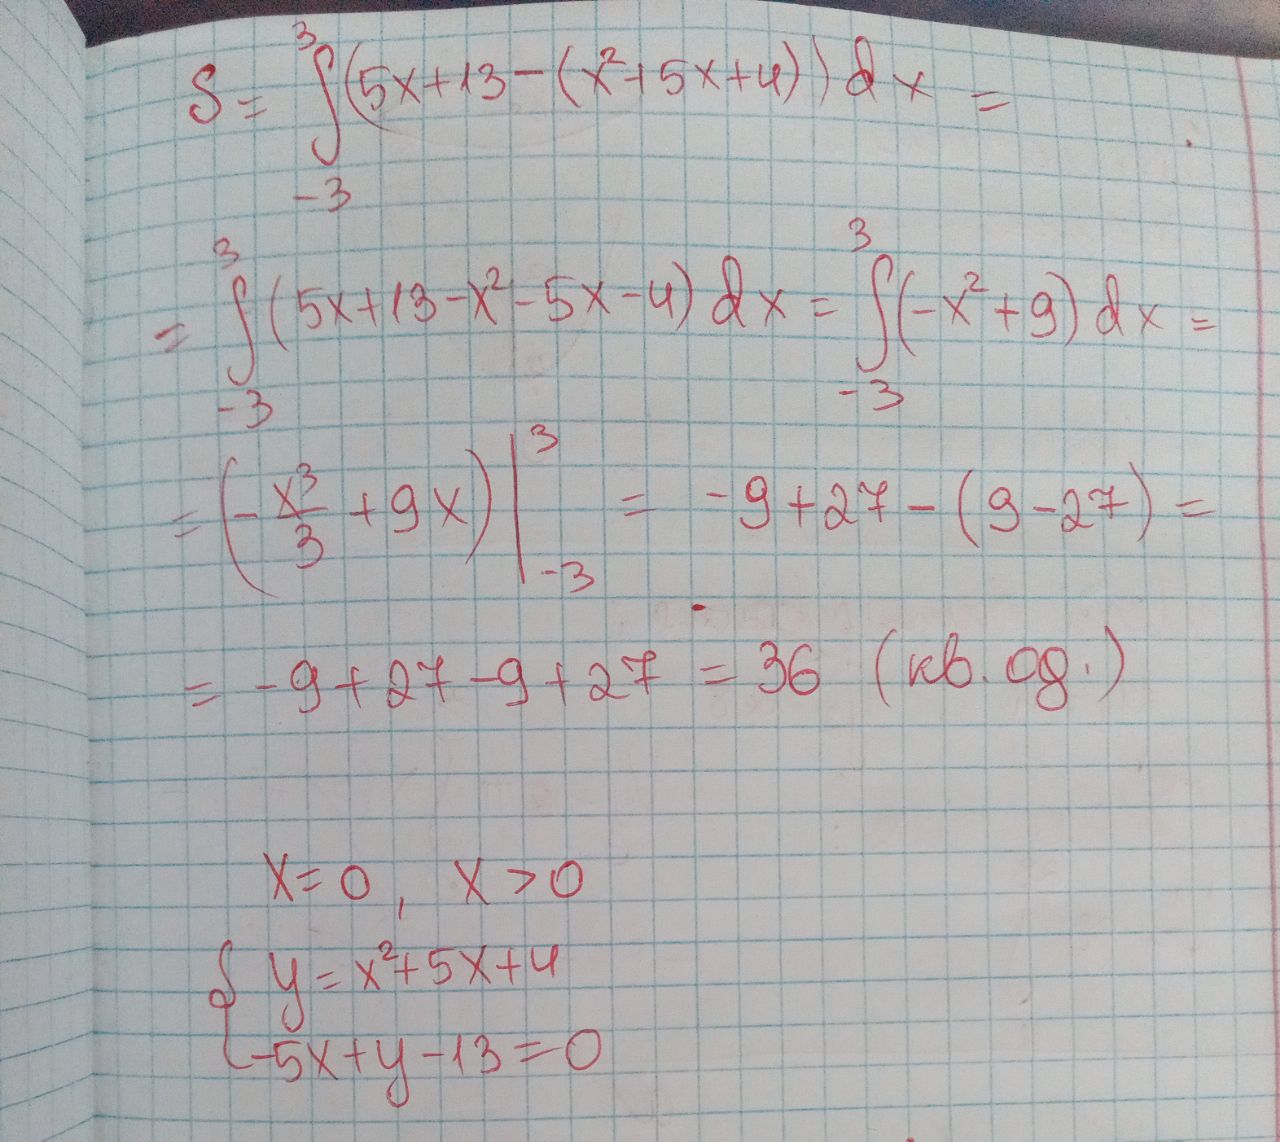 S = ∫₋₃³ (5x+13-(x²+5x+4))dx =
= ∫₋₃³ (5x+13-x²-5x-4)dx = ∫₋₃³ (-x²+9)dx =
= (-x³/3 + 9x) |₋₃³ = -9+27-(9-27) =
= -9+27-9+27 = 36 (кв. од.)
x=0, x>0
{ y = x²+5x+4
-5x+y-13=0